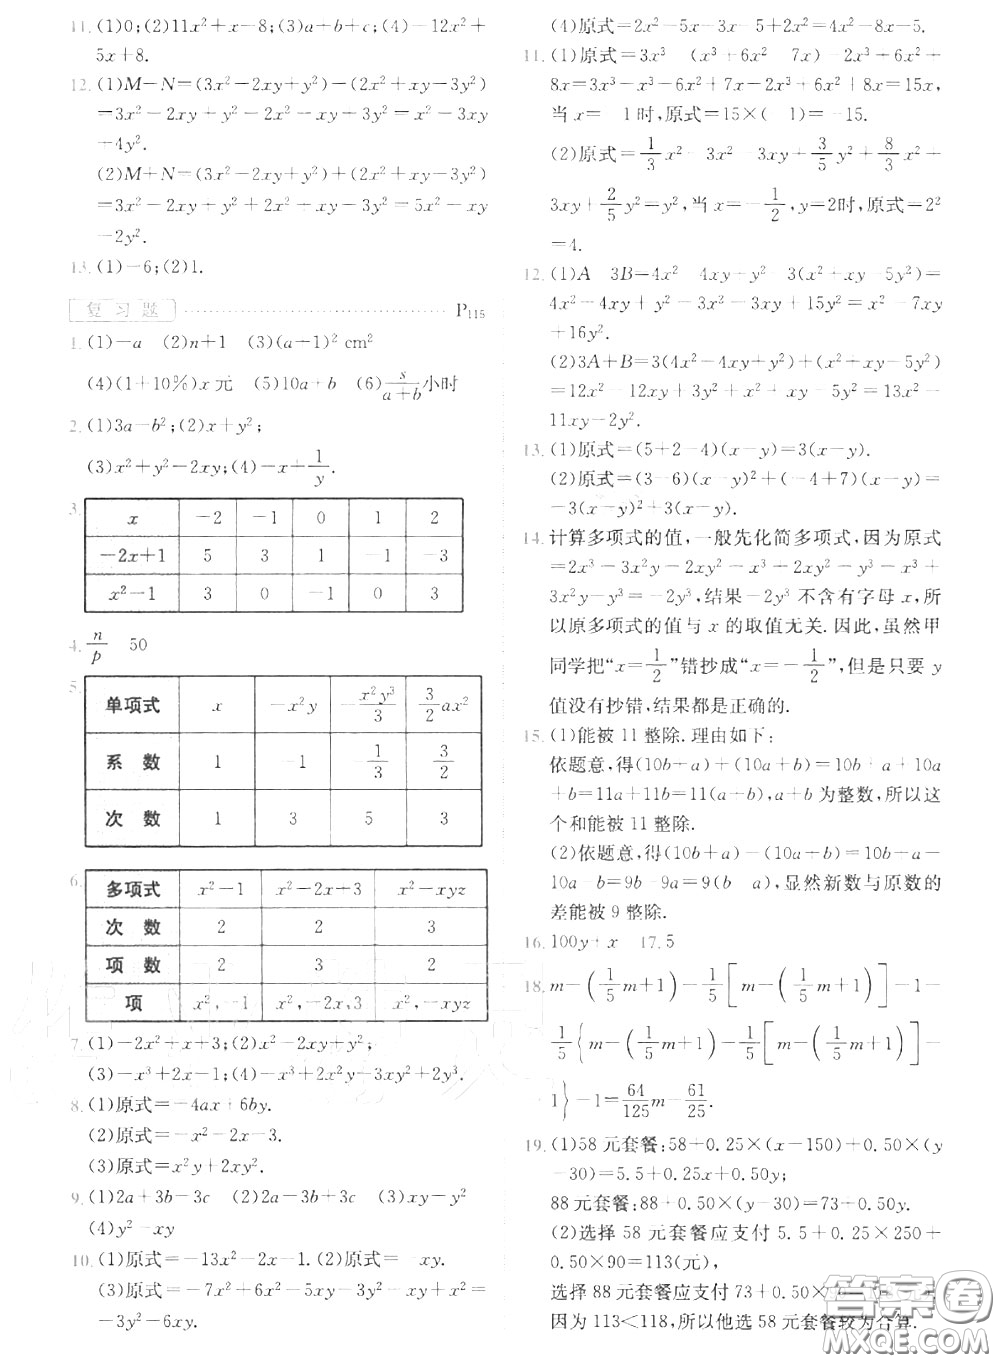 11. (1)0;(2)11x²+x-8;(3)a+b+c;(4)-12x²+
5x+8.
12. (1)M-N=(3x²-2xy+y²)-(2x²+xy-3y²)
=3x²-2xy+y²-2x²-xy+3y²=x²-3xy
+4y².
(2)M+N=(3x²-2xy+y²)+(2x²+xy-3y²)
=3x²-2xy+y²+2x²+xy-3y²=5x²-xy
-2y².
13. (1)-6;(2)1.
复习题 P115
1. (1)-a (2)n+1 (3)(a-1)² cm²
(4)(1+10%)x 元 (5)10a+b (6)s/(a+b)小时
2. (1)3a-b²;(2)x+y²;
(3)x²+y²-2xy;(4)-x+1/y.
3. x -2 -1 0 1 2
-2x+1 5 3 1 -1 -3
x²-1 3 0 -1 0 3
4. n/p 50
5. 单项式 x -x²y -x²y³/3 3/2ax²
系数 1 -1 -1/3 3/2
次数 1 3 5 3
6. 多项式 x²-1 x²-2x+3 x²-xyz
次数 2 2 3
项数 2 3 2
项 x²,-1 x²,-2x,3 x²,-xyz
7. (1)-2x²+x+3;(2)x²-2xy+y²;
(3)-x³+2x-1;(4)-x³+2x²y-3xy²+2y³.
8. (1)原式=-4ax+6by.
(2)原式=-x²-2x-3.
(3)原式=x²y+2xy².
9. (1)2a+3b-3c (2)2a-3b+3c (3)xy-y²
(4)y²-xy
10. (1)原式=-13x²-2x-1. (2)原式=-xy.
(3)原式=-7x²+6x²-5xy-3y²+4x²-xy=
-3y²-6xy.
(4)原式=2x²-5x-3x-5+2x²=4x²-8x-5.
11. (1)原式=3x³ (x³+6x² 7x)-2x³+6x²+
8x=3x³-x³-6x²+7x-2x³+6x²+8x=15x,
当 x= 1时,原式=15×( 1)=-15.
(2)原式=1/3x²-3x²-3xy+3/5y²+8/3x²+
3xy+2/5y²=y²,当 x=-1/2,y=2时,原式=2²
=4.
12. (1)A 3B=4x² 4xy-y² 3(x²+xy-5y²)=
4x²-4xy+y²-3x²-3xy+15y²=x²-7xy
+16y².
(2)3A+B=3(4x²-4xy+y²)+(x²+xy-5y²)
=12x²-12xy+3y²+x²+xy-5y²=13x²-
11xy-2y².
13. (1)原式=(5+2-4)(x-y)=3(x-y).
(2)原式=(3-6)(x-y)²+(-4+7)(x-y)=
-3(x-y)²+3(x-y).
14. 计算多项式的值,一般先化简多项式,因为原式
=2x³-3x²y-2xy²-x³+2xy²-y³-x³+
3x²y-y³=-2y³,结果-2y³ 不含有字母 x,所
以原多项式的值与 x 的取值无关.因此,虽然甲
同学把“x=1/2”错抄成“x=-1/2”,但是只要 y
值没有抄错,结果都是正确的.
15. (1)能被 11 整除.理由如下:
依题意,得(10b+a)+(10a+b)=10b+a+10a
+b=11a+11b=11(a+b),a+b 为整数,所以这
个和能被 11 整除.
(2)依题意,得(10b+a)-(10a+b)=10b+a-
10a-b=9b-9a=9(b a),显然新数与原数的
差能被 9 整除.
16. 100y+x 17.5
18. m-(1/5m+1)-1/5[m-(1/5m+1)]-1-
1/5{m-(1/5m+1)-1/5[m-(1/5m+1)]-
1}-1=64/125m-61/25.
19. (1)58 元套餐:58+0.25×(x-150)+0.50×(y
-30)=5.5+0.25x+0.50y;
88 元套餐:88+0.50×(y-30)=73+0.50y.
(2)选择 58 元套餐应支付 5.5+0.25×250+
0.50×90=113(元),
选择 88 元套餐应支付 73+0.50×
因为 113<118,所以他选 58 元套餐较为合算.
答案圈
MXQE.COM